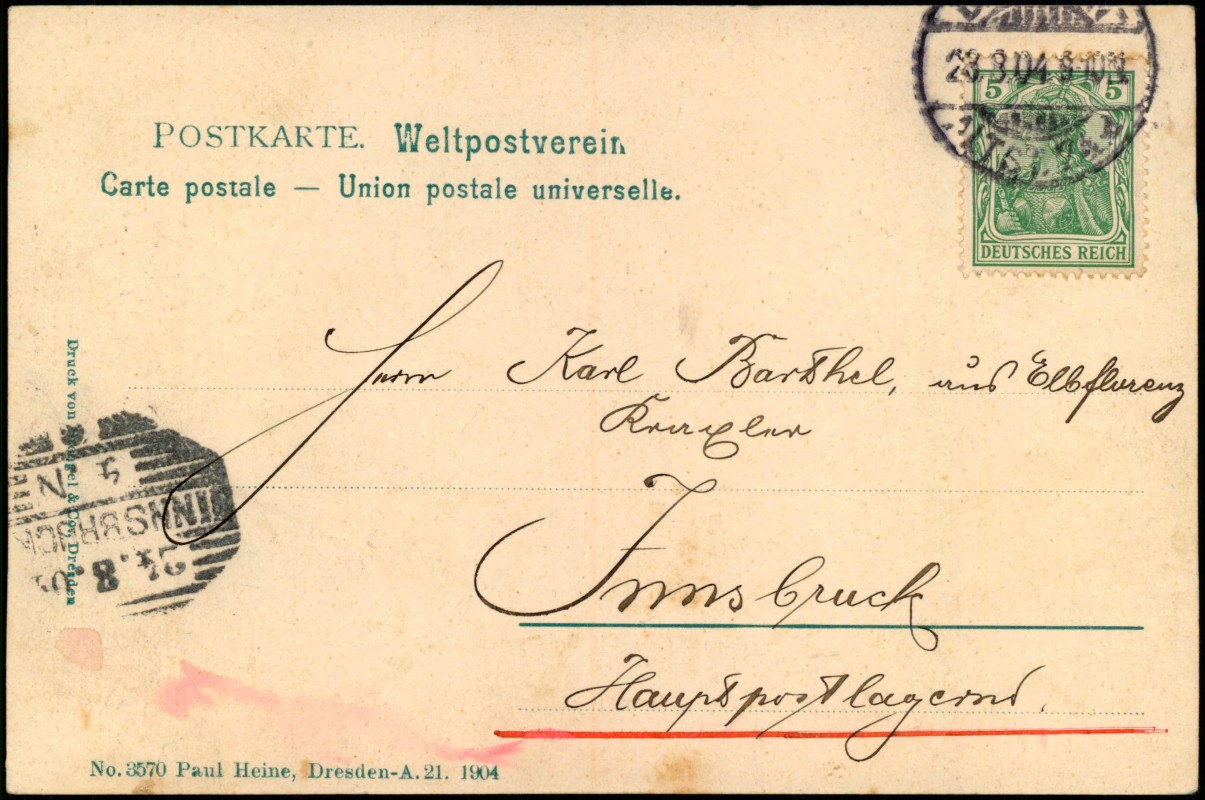 POSTKARTE. Weltpostverein
Carte postale — Union postale universelle.
23.8.04
5 5
DEUTSCHES REICH
Herrn Karl Barthel, aus Elbflorenz
Kraxler
Innsbruck
Hauptpostlagernd.
Druck von & Co., Dresden
4 N
INNSBRUCK
24.8.04
No. 3570 Paul Heine, Dresden-A. 21. 1904